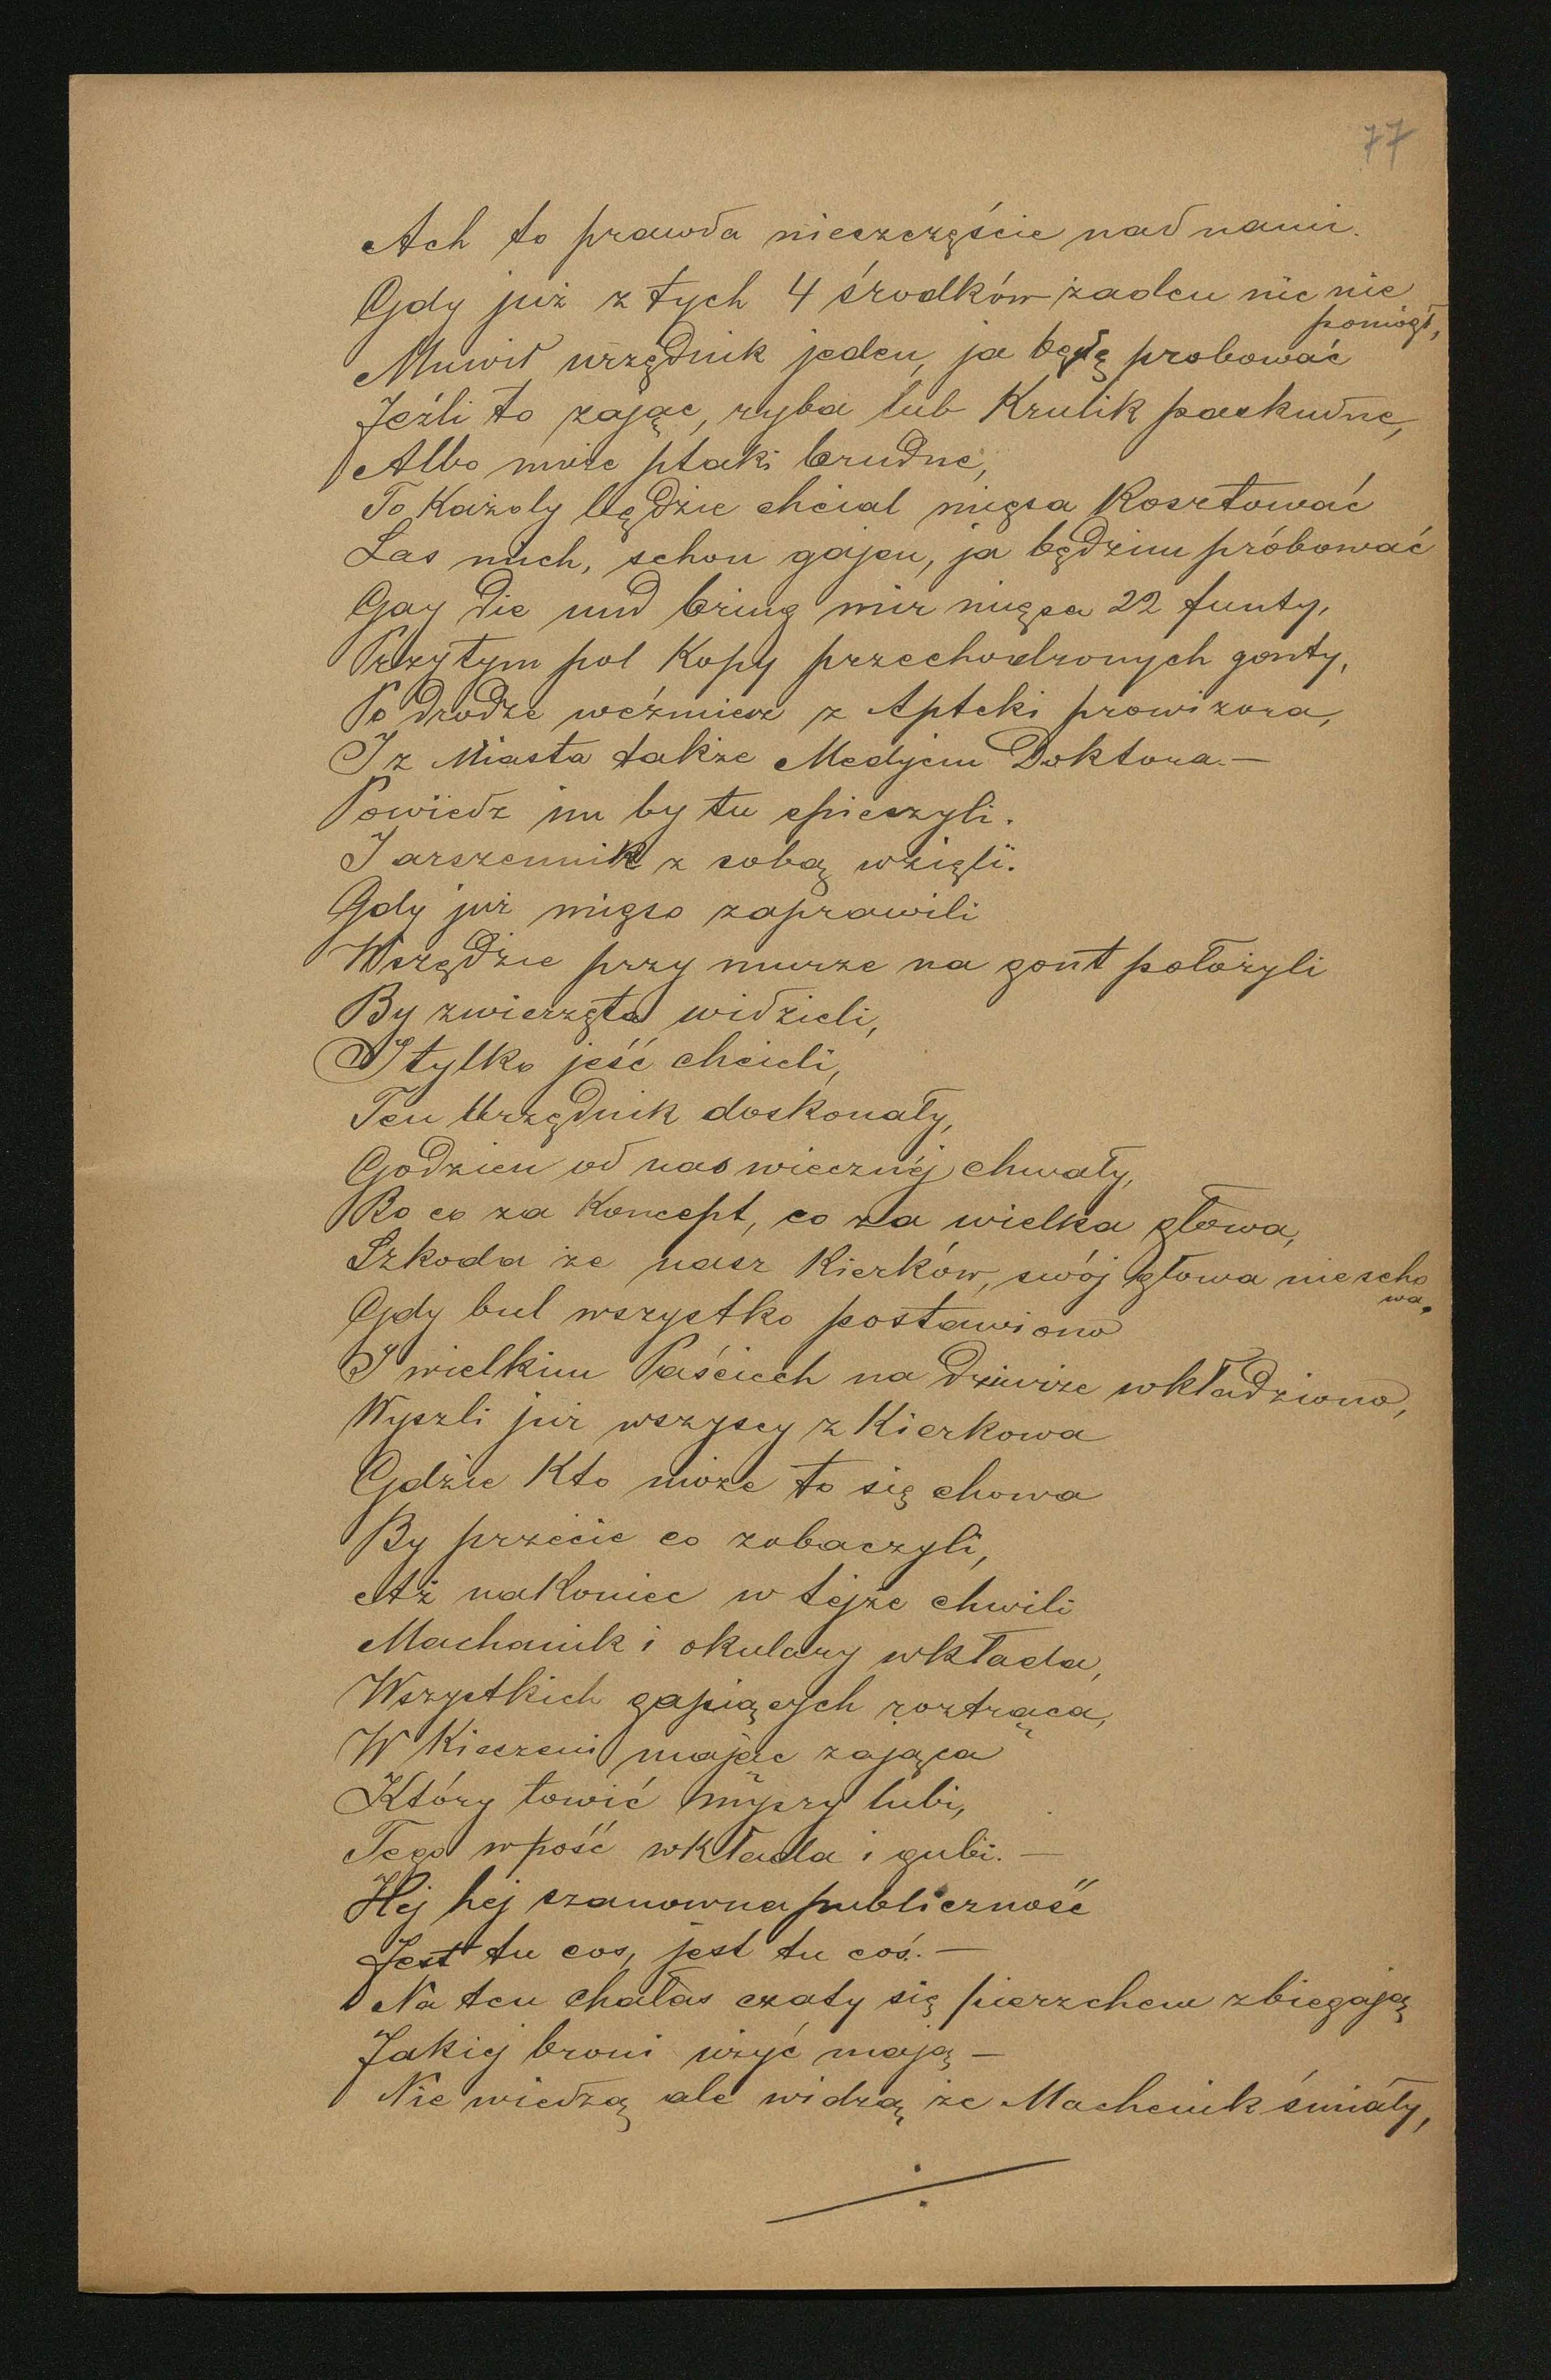 77
Ach to prawda nieszczęście nad nami.
Gdy już z tych 4 środków żaden nic nie
pomógł,
Muwił urzędnik jeden, ja będę probować
Jeźli to zając, ryba lub Krulik paskudne,
Albo może ptaki brudne,
To Każdy będzie chciał mięsa Kosztować
Las mich, schon gajen, ja będzim próbować
Gay die und bring mir mięsa 22 funty,
Przytym pol Kopy przechodzonych gonty,
Po drodze weźmiesz z Apteki prowizora,
I z Miasta także Medjem Doktora. —
Powiedz im by tu spieszyli.
I arszennik z sobą wzięli.
Gdy już mięso zaprawili
Wszędzie przy murze na gont położyli
By zwierzęta widzieli,
I tylko jeść chcieli,
Ten Urzędnik doskonały,
Godzien od nas wiecznéj chwały,
Bo co za Koncept, co za wielka głowa,
Szkoda że nasz Kierków, swój głowa nie scho
wa.
Gdy bul wszystko postawiono
I wielkim Paściech na dziurze wkładziono,
Wyszli już wszyscy z Kierkowa
Gdzie Kto może to się chowa
By przécie co zobaczyli,
Aż nakoniec w téjże chwili
Machanik i okulary wkłada,
Wszystkich gapiących roztrąca,
W Kieszeni mając zająca
Który łowić myszy lubi,
Tego w pość wkłada i gubi. —
Hej hej szanowna publiczność
Jest tu cos, jest tu coś. —
Na ten chałas czaty się pierzchem zbiegają
Jakiej broni użyć mają —
Nie wiedzą ale widzą że Machenik śmiały,